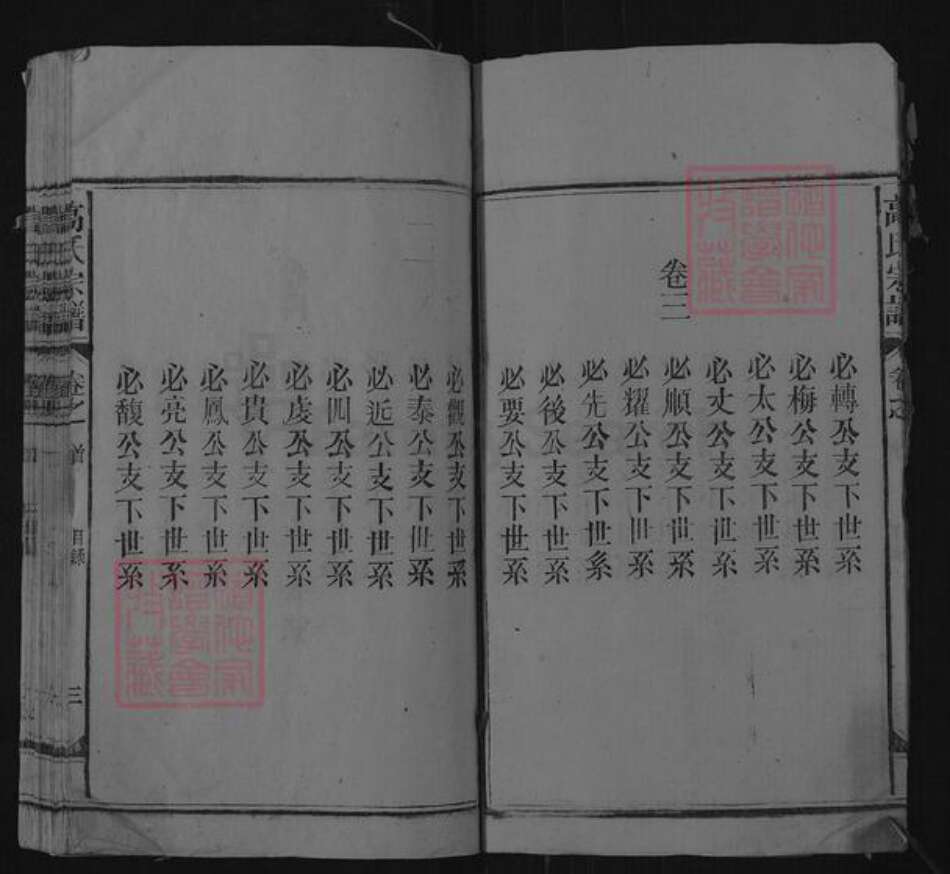 高氏宗譜
卷之
必轉公支下世系
必梅公支下世系
必太公支下世系
必文公支下世系
卷三
必順公支下世系
必耀公支下世系
必先公支下世系
必後公支下世系
必要公支下世系
必觀公支下世系
必泰公支下世系
必近公支下世系
必四公支下世系
必虔公支下世系
必貴公支下世系
必鳳公支下世系
必亮公支下世系
必馥公支下世系
高氏宗譜
卷之首
目錄
三